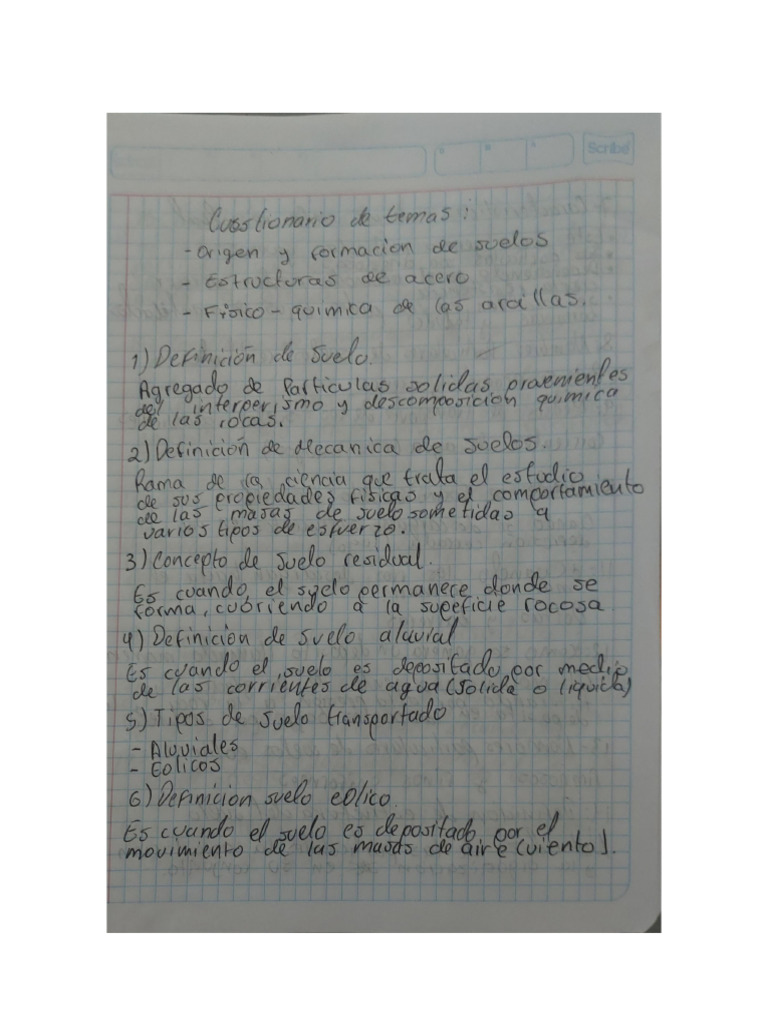 Scribe
Cuestionario de temas:
- Origen y formacion de suelos
- Estructuras de acero
- Fisico - quimica de las arcillas.
1) Definición de suelo.
Agregado de particulas solidas provenientes
del interperismo y descomposición quimica
de las rocas.
2) Definición de Mecanica de suelos.
Rama de la ciencia que trata el estudio
de sus propiedades fisicas y el comportamiento
de las masas de suelo sometidas a
varios tipos de esfuerzo.
3) Concepto de suelo residual.
Es cuando, el suelo permanece donde se
forma, cubriendo a la supeficie rocosa
4) Definición de suelo aluvial
Es cuando el suelo es depositado por medio
de las corrientes de agua (solida o liquida)
5) Tipos de suelo transportado
- Aluviales
- Eolicos
6) Definicion suelo eolico.
Es cuando el suelo es depositado por el
movimiento de las masas de aire (viento).